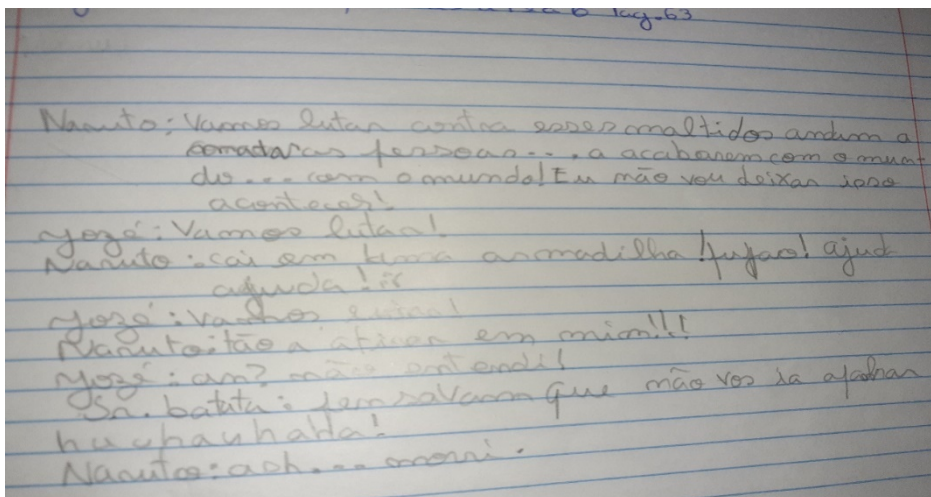 Pag.63
Naruto: Vamos lutar contra esses maltidos andam a
comatar as pessoas.... a acabarem com o mun-
do... com o mundo! Eu não vou deixar isso
acontecer!
Jozé: Vamos lutar!
Naruto: cai em uma armadilha! fujao! ajud
ajuda!
Jozé: Vamos lutar!
Naruto: tão a atirar em mim!!!
Jozé: an? não entendi!
Sr. batata: pensavam que não vos ia apanhar
huuhauhaha!
Naruto: aoh... morri.